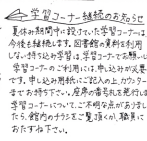 学習コーナー継続のお知らせ
夏休み期間中に設けていた学習コーナーは、
今後も継続します。図書館の資料を利用
しない持ち込み学習は、学習コーナーでお願いし
学習コーナーのご利用には、申し込みが必要
です。申し込み用紙にご記入の上、カウンター
までお持ち下さい。座席の番号札を発行し
学習コーナーについて、ご不明な点がありまし
たら、館内のチラシをご覧頂くか、職員に
おたずね下さい。